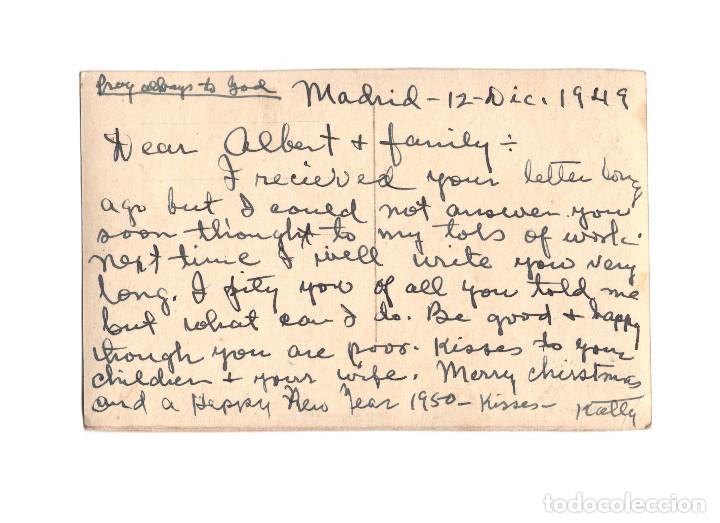 Pray always to God
Madrid - 12 - Dic. 1949
Dear Albert + family ÷
I recieved your letter long
ago but I could not answer you
soon thought to my tols of work.
next time I will write you very
long. I pity you of all you told me
but what can I do. Be good + happy
though you are poor. Kisses to your
children + your wife. Merry Chirstmas
and a Happy New Year 1950 - Kisses - Katty
todocoleccion